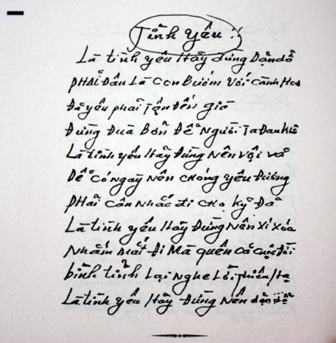 Tình yêu !!
Là tình yêu Hãy đừng Dặn dò
PHải Đâu Là Con Bướm Với Cành Hoa
Đã yêu phải Tận Đến già
Đừng Đùa Bởn Để Người Ta Đau khổ
Là tình yêu Hãy Đừng Nên Vội và
Dể Có ngaỹ Nên chồng yêu Đương
PHải Cân Nhắc đi cho Kỹ Đã
Là tình yêu Hãy Đừng Nên Xí Xóa
Nhắm mắt Đi Mà quên cả cuộc đời
bình tỉnh Lại Nghe Lời Thiên Hạ
Là tình yêu Hãy Đừng Nên